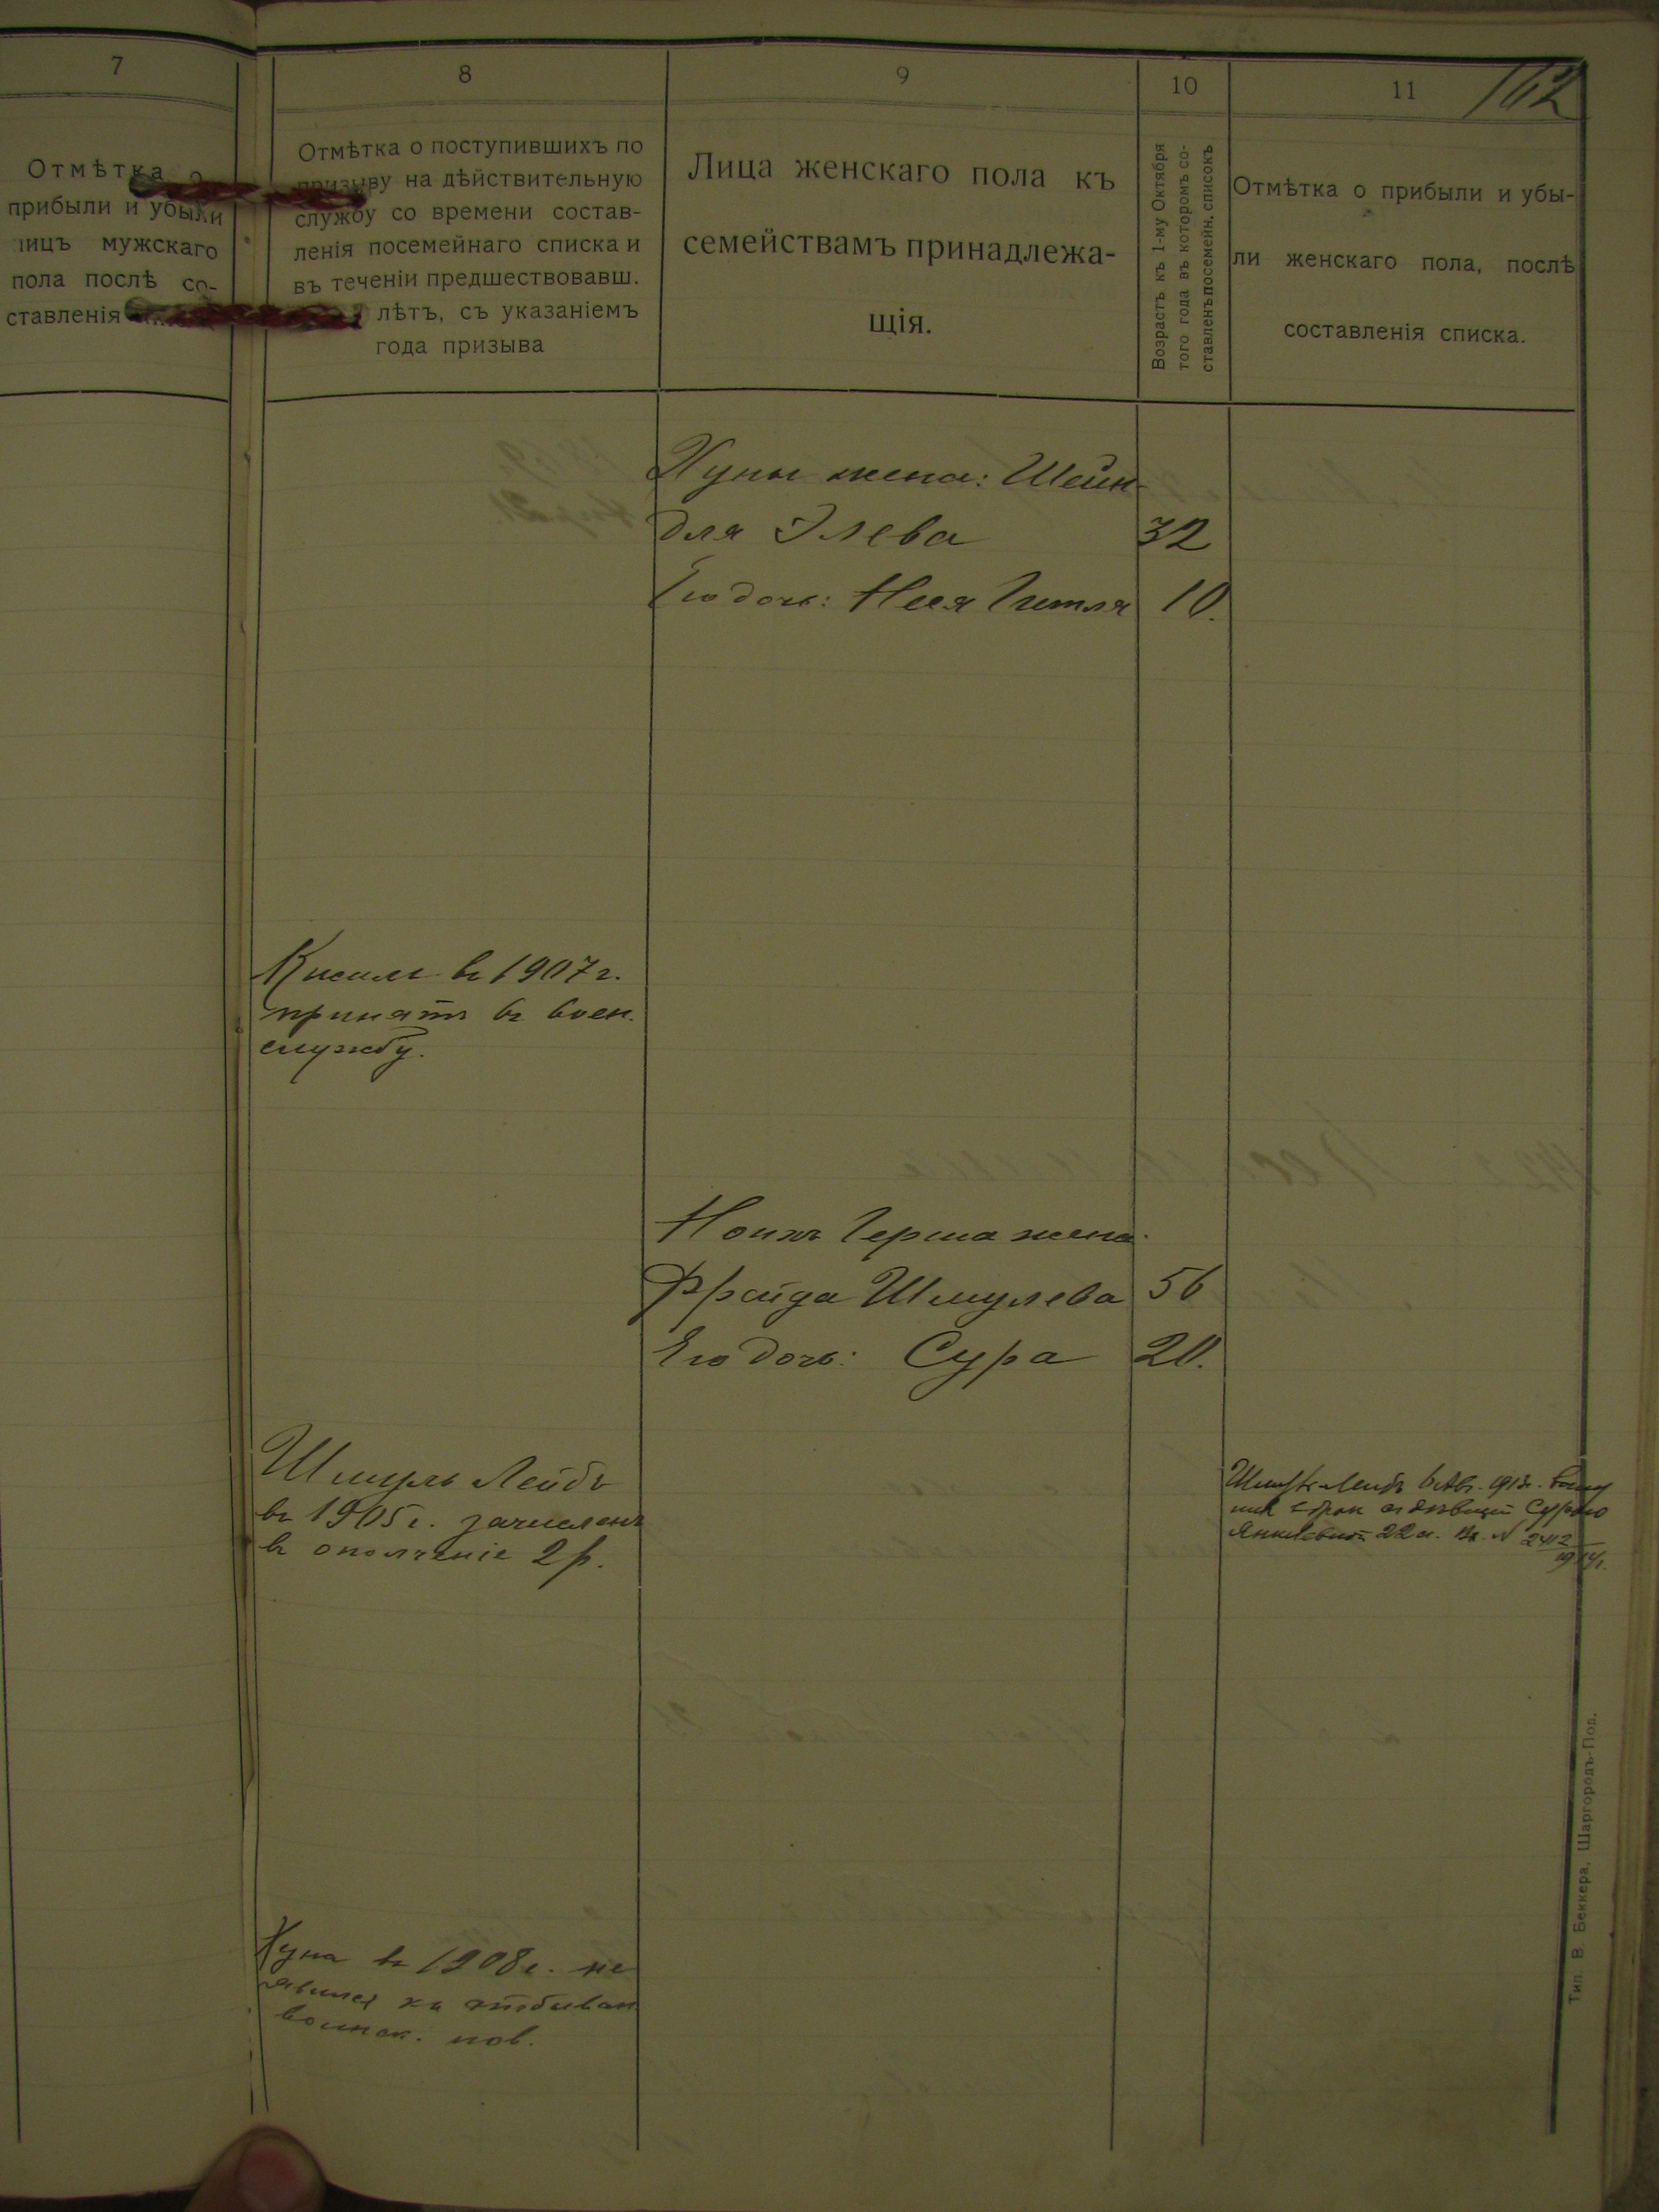 7
8
9
10
11
162
Отмѣтка о
прибыли и убыли
лицъ мужскаго
пола послѣ со-
ставленія
Отмѣтка о поступившихъ по
призыву на дѣйствительную
службу со времени состав-
ленія посемейнаго списка и
въ теченіи предшествовавш.
лѣтъ, съ указаніемъ
года призыва
Лица женскаго пола къ
семействамъ принадлежа-
щія.
Возрастъ къ 1-му Октября
того года въ которомъ со-
ставленъ посемейн. списокъ
Отмѣтка о прибыли и убы-
ли женскаго пола, послѣ
составленія списка.
Хуны жена: Шейн-
для Элева 32
Его дочь: Неся Гитля 10.
Кисиль въ 1907 г.
принятъ въ воен.
службу.
Ноихъ Герша жена
Фрайда Шмулева 56
Его дочь: Сура 20.
Шмуль Лейбъ
въ 1905 г. зачисленъ
въ ополченіе 2 р.
Шмуль Лейбъ 6 Авг. 913 г. всту
пил в брак съ дѣвицей Сурою
22 л. Вх. № 2412
1914 г.
Хуна въ 1908 г. не
явился къ отбыван.
воинск. пов.
Тип. В Беккера, Шаргородъ-Под.